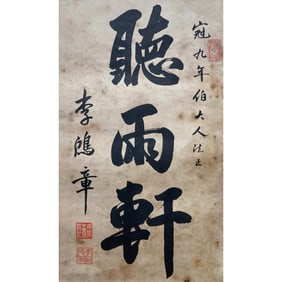 冠九年伯大人法正
聽雨軒
李鴻章